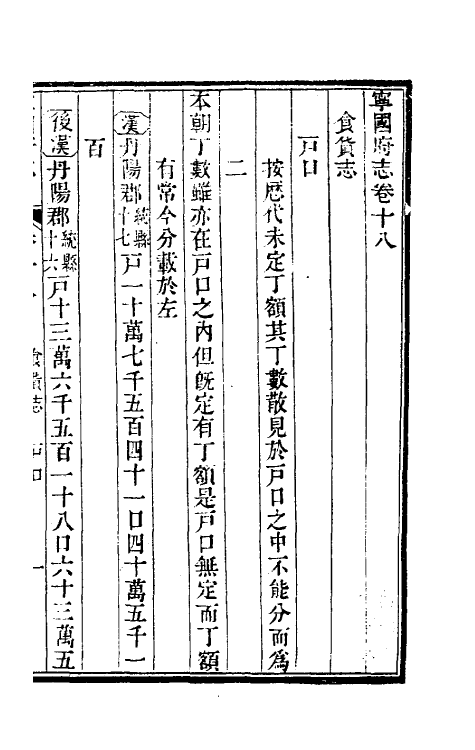 寧國府志卷十八
食貨志
戸口
按歷代未定丁額其丁數散見於戸口之中不能分而爲
二
本朝丁數雖亦在戸口之內但旣定有丁額是戸口無定而丁額
有常今分載於左
漢丹陽郡統縣十七戸一十萬七千五百四十一口四十萬五千一
百
後漢丹陽郡統縣十六戸十三萬六千五百一十八口六十三萬五
食貨志 戸口 一